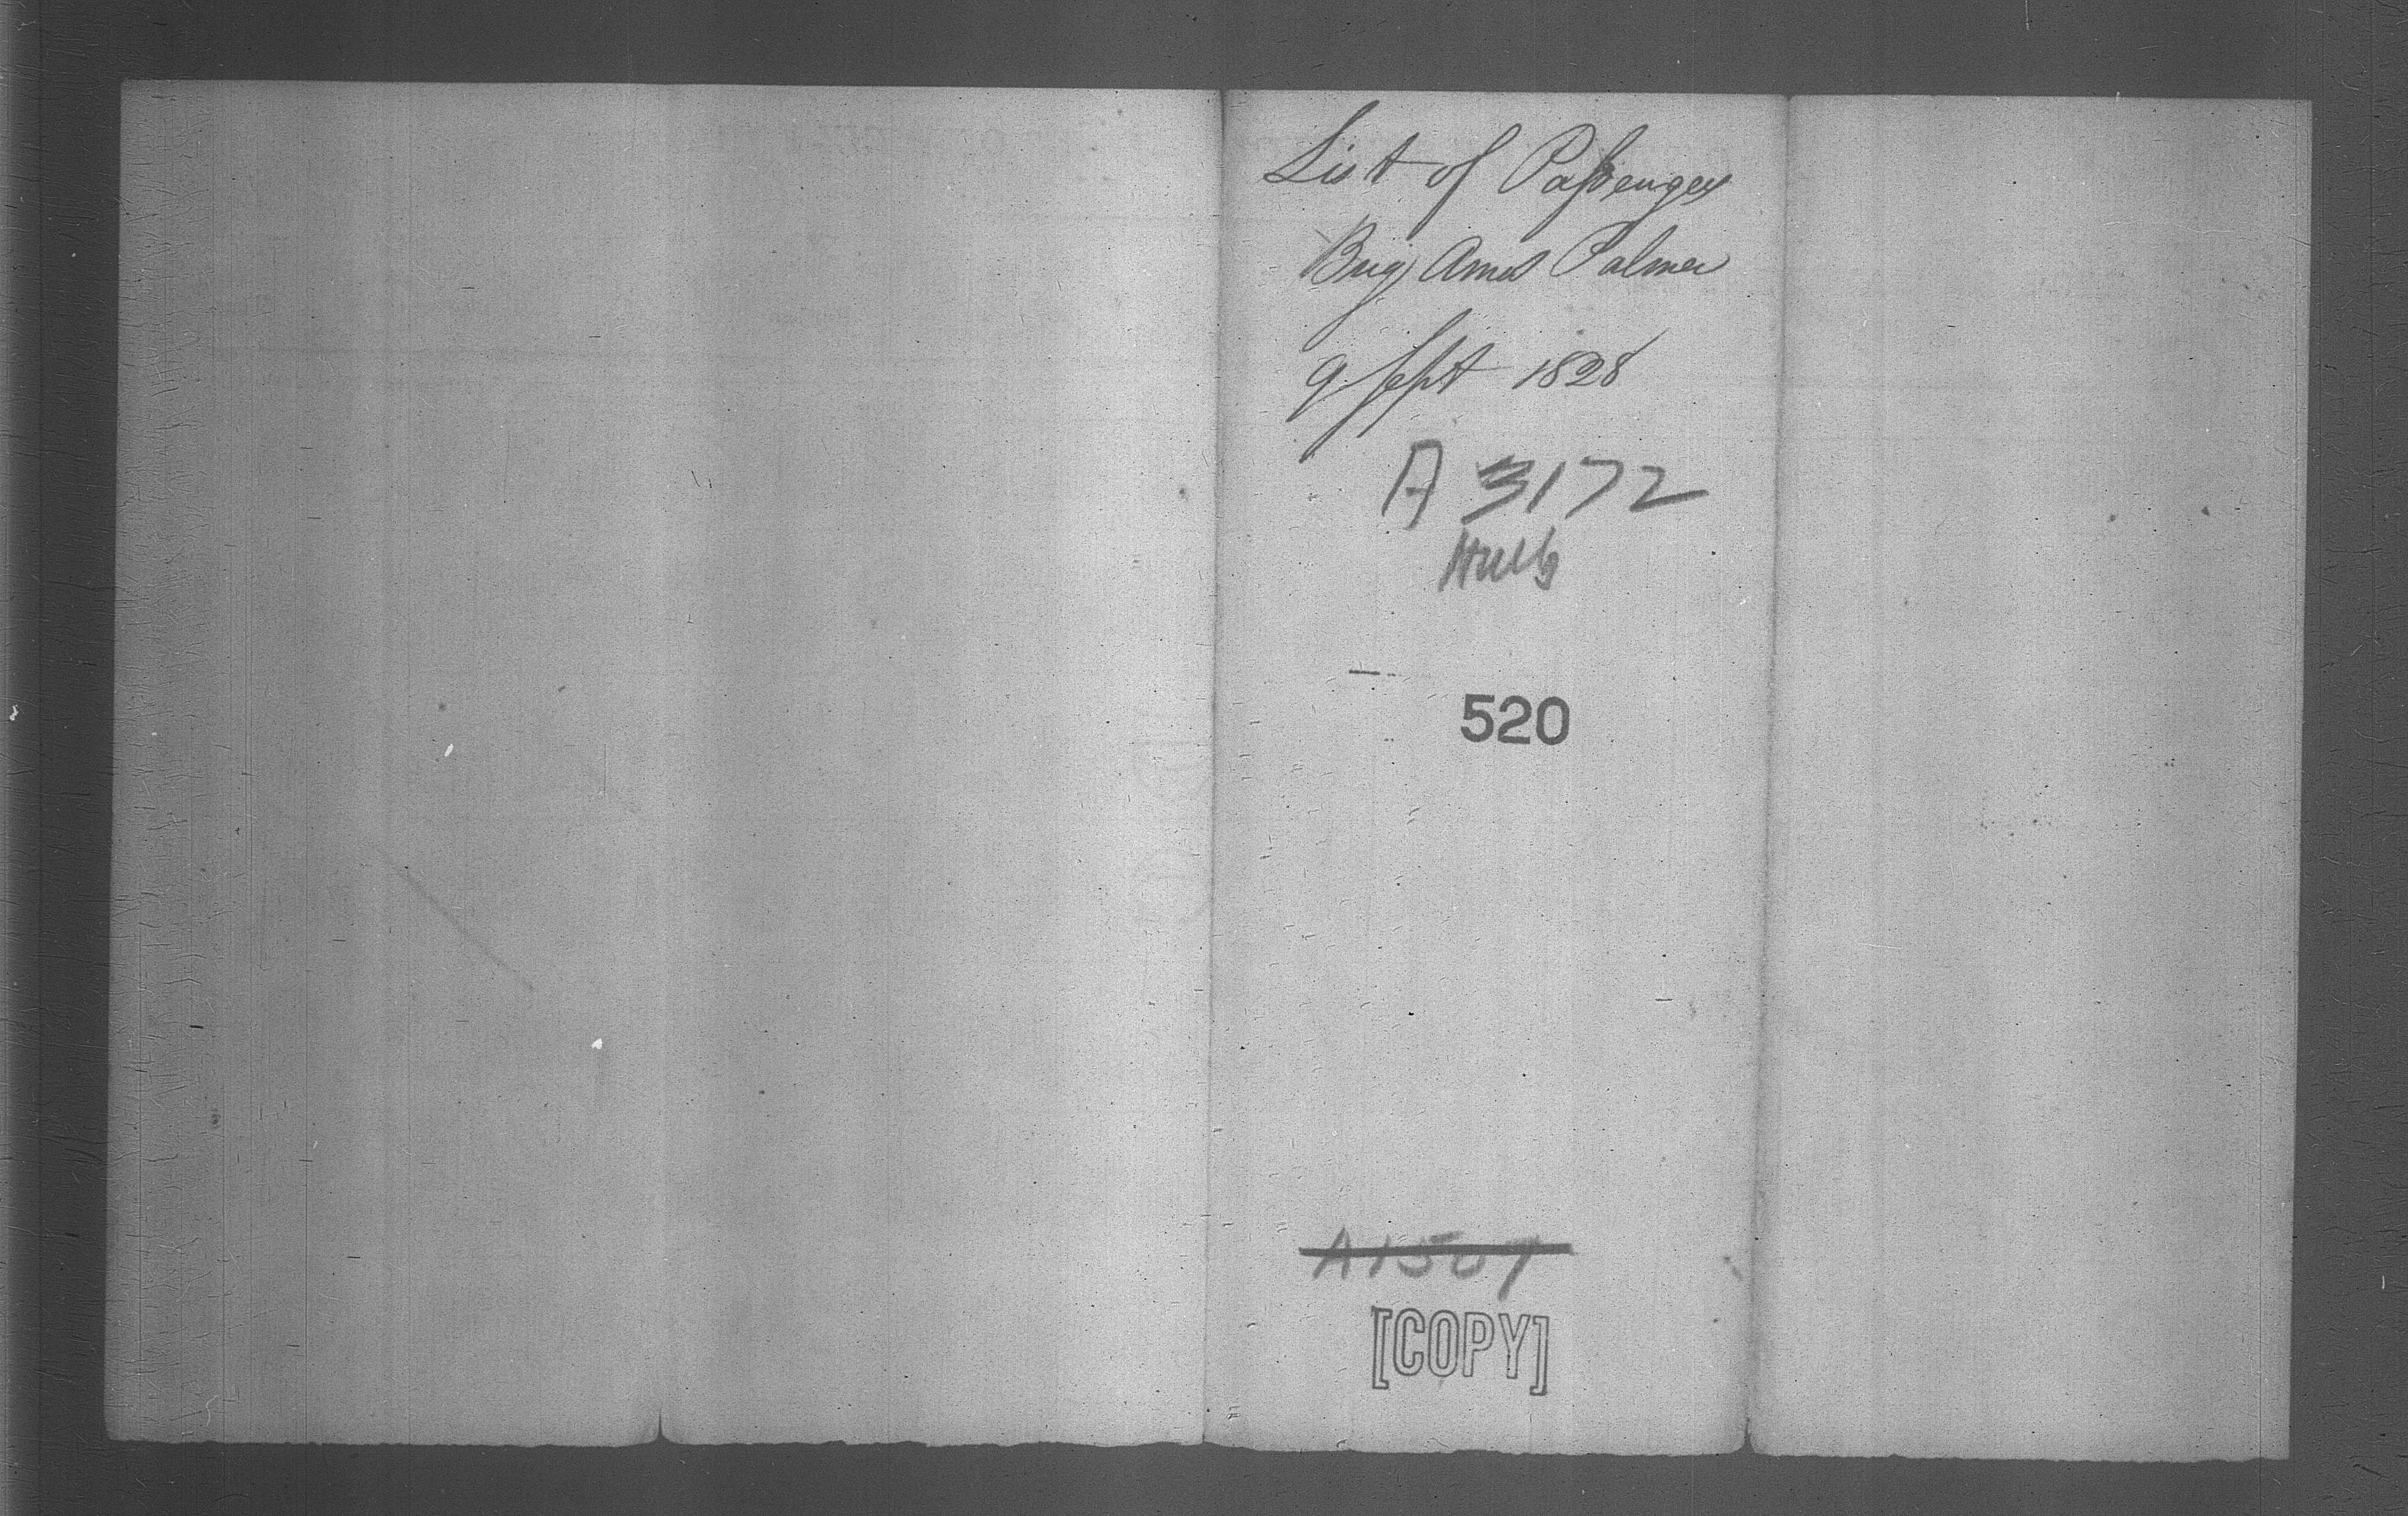 List of Passenger
Brig Amos Palmer
9 Sept 1828
A 3172
520
A 1507
[COPY]